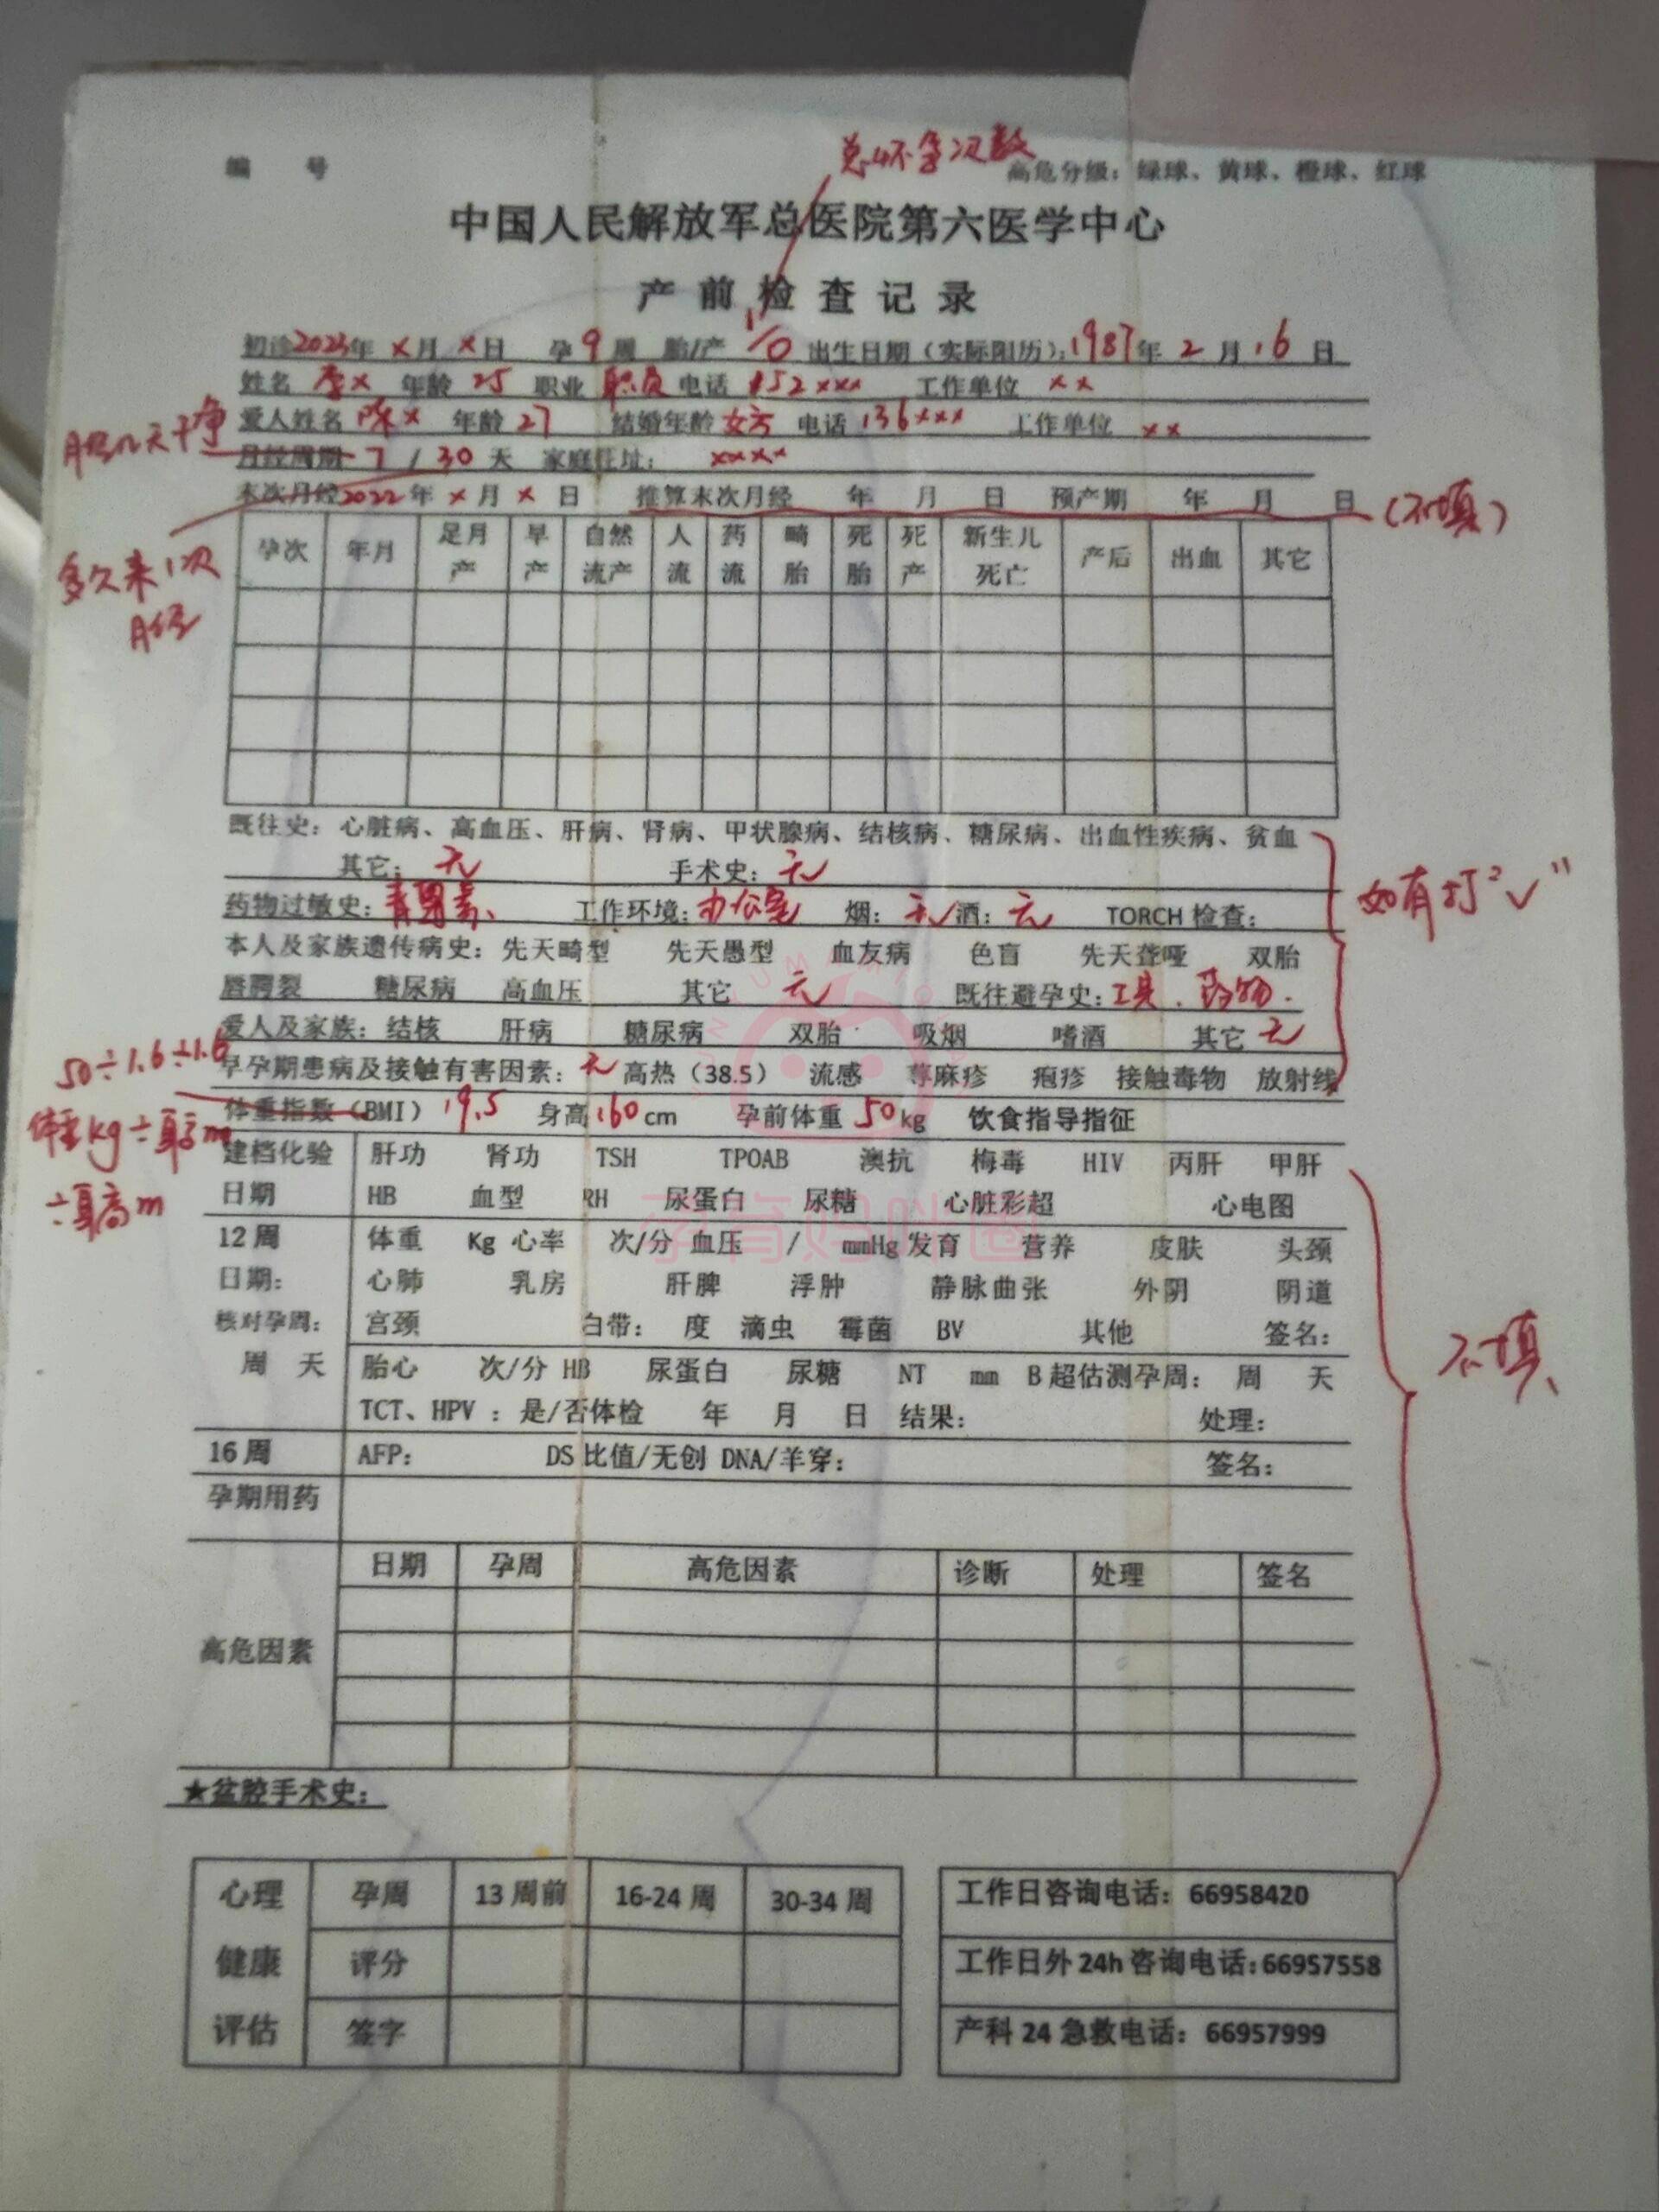 总怀孕次数
编 号 高危分级：绿球、黄球、橙球、红球
中国人民解放军总医院第六医学中心
产前检查记录
初诊2023年 x月 x日 孕9周 胎/产 1/0 出生日期（实际阳历）：1987年 2月 16日
姓名 李x 年龄 25 职业 职员 电话 152xxx 工作单位 xx
爱人姓名 陈x 年龄 27 结婚年龄 女方 电话 136xxx 工作单位 xx
月经几天干净
月经周期 7 / 30 天 家庭住址： xxxx
末次月经2022年 x月 x日 推算末次月经 年 月 日 预产期 年 月 日 （不填）
多久来1次
月经
孕次 年月 足月产 早产 自然流产 人流 药流 畸胎 死胎 死产 新生儿死亡 产后 出血 其它
既往史：心脏病、高血压、肝病、肾病、甲状腺病、结核病、糖尿病、出血性疾病、贫血
其它：无 手术史：无
如有打"√"
药物过敏史：青霉素、 工作环境：办公室 烟：无 酒：无 TORCH 检查：
本人及家族遗传病史：先天畸型 先天愚型 血友病 色盲 先天聋哑 双胎
唇腭裂 糖尿病 高血压 其它 无 既往避孕史：工具．药物．
爱人及家族：结核 肝病 糖尿病 双胎 吸烟 嗜酒 其它 无
早孕期患病及接触有害因素：无 高热（38.5） 流感 荨麻疹 疱疹 接触毒物 放射线
50÷1.6÷1.6
体重指数（BMI） 19.5 身高160cm 孕前体重 50kg 饮食指导指征
体重kg÷身高m
÷身高m
建档化验 肝功 肾功 TSH TPOAB 澳抗 梅毒 HIV 丙肝 甲肝
日期 HB 血型 RH 尿蛋白 尿糖 心脏彩超 心电图
孕育妈咪圈
12周 体重 Kg 心率 次/分 血压 / mmHg 发育 营养 皮肤 头颈
日期： 心肺 乳房 肝脾 浮肿 静脉曲张 外阴 阴道
核对孕周： 宫颈 白带： 度 滴虫 霉菌 BV 其他 签名：
不填、
周 天 胎心 次/分 HB 尿蛋白 尿糖 NT mm B超估测孕周： 周 天
TCT、HPV ：是/否体检 年 月 日 结果： 处理：
16周 AFP： DS 比值/无创 DNA/羊穿： 签名：
孕期用药
日期 孕周 高危因素 诊断 处理 签名
高危因素
★盆腔手术史：
心理健康评估 孕周 13周前 16-24周 30-34周
评分
签字
工作日咨询电话：66958420
工作日外24h咨询电话：66957558
产科24急救电话：66957999